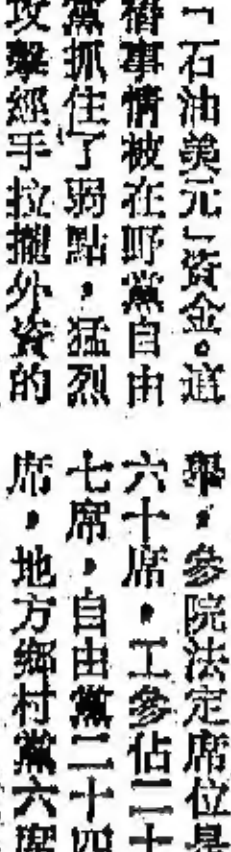 「石油美元」資金。這
樁事情被在野黨自由
黨抓住了弱點,猛烈
攻擊經手拉攏外資的
舉,參院法定席位是
六十席,工參佔二十
七席,自由黨二十四
席,地方鄉村黨六席